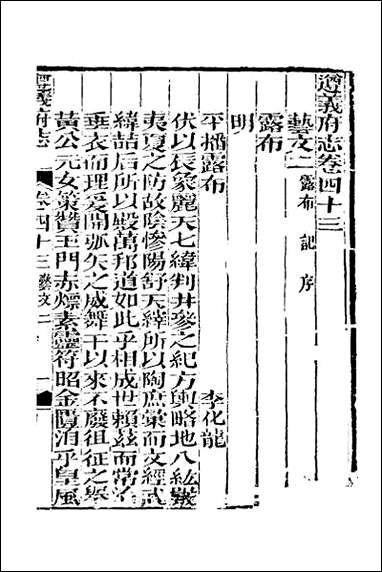 遵義府志卷四十三
藝文二 露布 記 序
露布
明
平播露布 李化龍
伏以長象麗天七緯判井參之紀方輿略地八紘嚴
夷夏之防故陰慘陽舒天繹所以陶庶彙而文經武
緯喆后所以毆萬邦道如此乎相成世賴茲而常治
垂衣而理爰開弧矢之威舞干以來不廢徂征之舉
黃公元女策贊玉門赤熛素靈符昭金匱洎乎皇風
遵義府志 卷四十三 藝文二 一